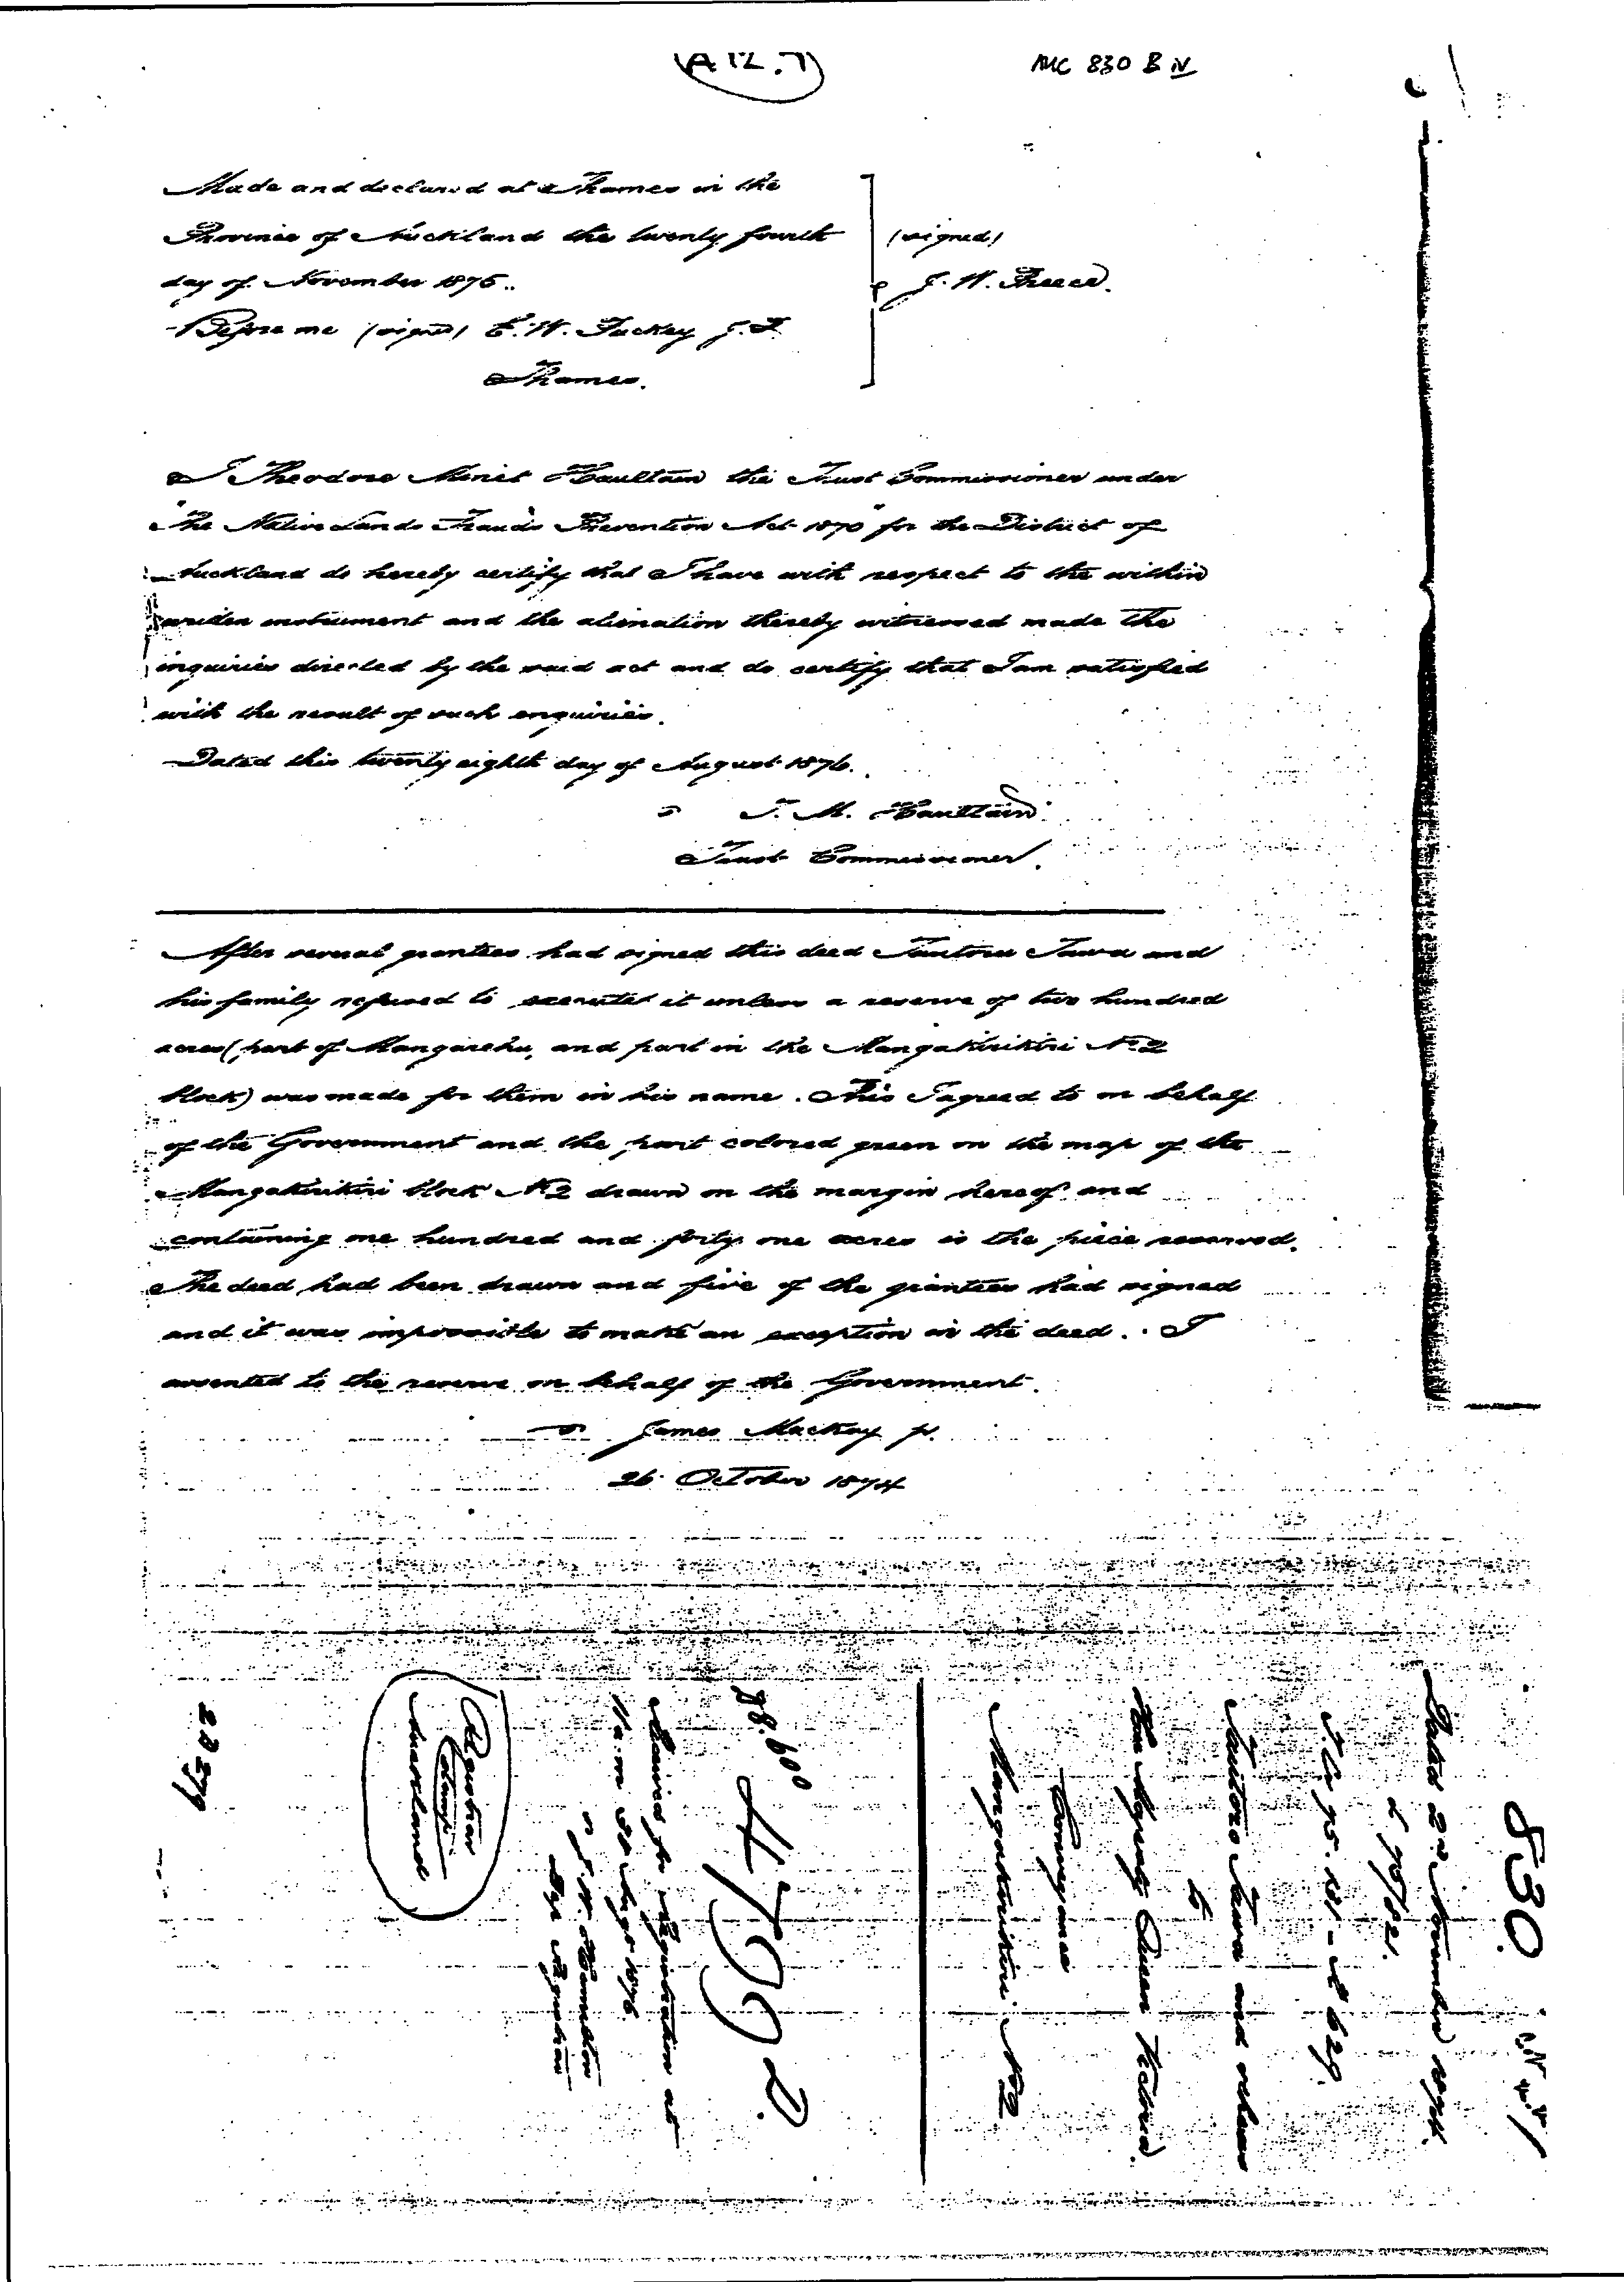 (A 12.7)
MC 830 B IV
Made and declared at Thames in the
Province of Auckland the twenty fourth
day of November 1875.
(signed)
J. W. Preece.
Before me (signed) E. W. Puckey J. P.
Thames.
I Theodore Minet Haultain the Trust Commissioner under
"The Native Lands Frauds Prevention Act 1870" for the District of
Auckland do hereby certify that I have with respect to the within
written instrument and the alienation thereby witnessed made the
inquiries directed by the said act and do certify that I am satisfied
with the result of such enquiries.
Dated this twenty eighth day of August 1876.
T. M. Haultain
Trust Commissioner.
After several grantees had signed this deed Tautoru Tawa and
his family refused to execute it unless a reserve of two hundred
acres (part of Mangarehu, and part in the Mangakirikiri No 2
block) was made for them in his name. This I agreed to on behalf
of the Government and the part colored green on the map of the
Mangakirikiri block No 2 drawn on the margin hereof and
containing one hundred and forty one acres is the piece reserved.
The deed had been drawn and five of the grantees had signed
and it was impossible to make an exception in the deed. I
assented to the reserve on behalf of the Government.
James Mackay jr.
26 October 1874
830.
Dated 2nd November 1874.
Tautoru Tawa and others
to
Her Majesty Queen Victoria.
Conveyance
Mangakirikiri No 2
4799 D.
Received for Registration at
Dep Registrar
Auckland